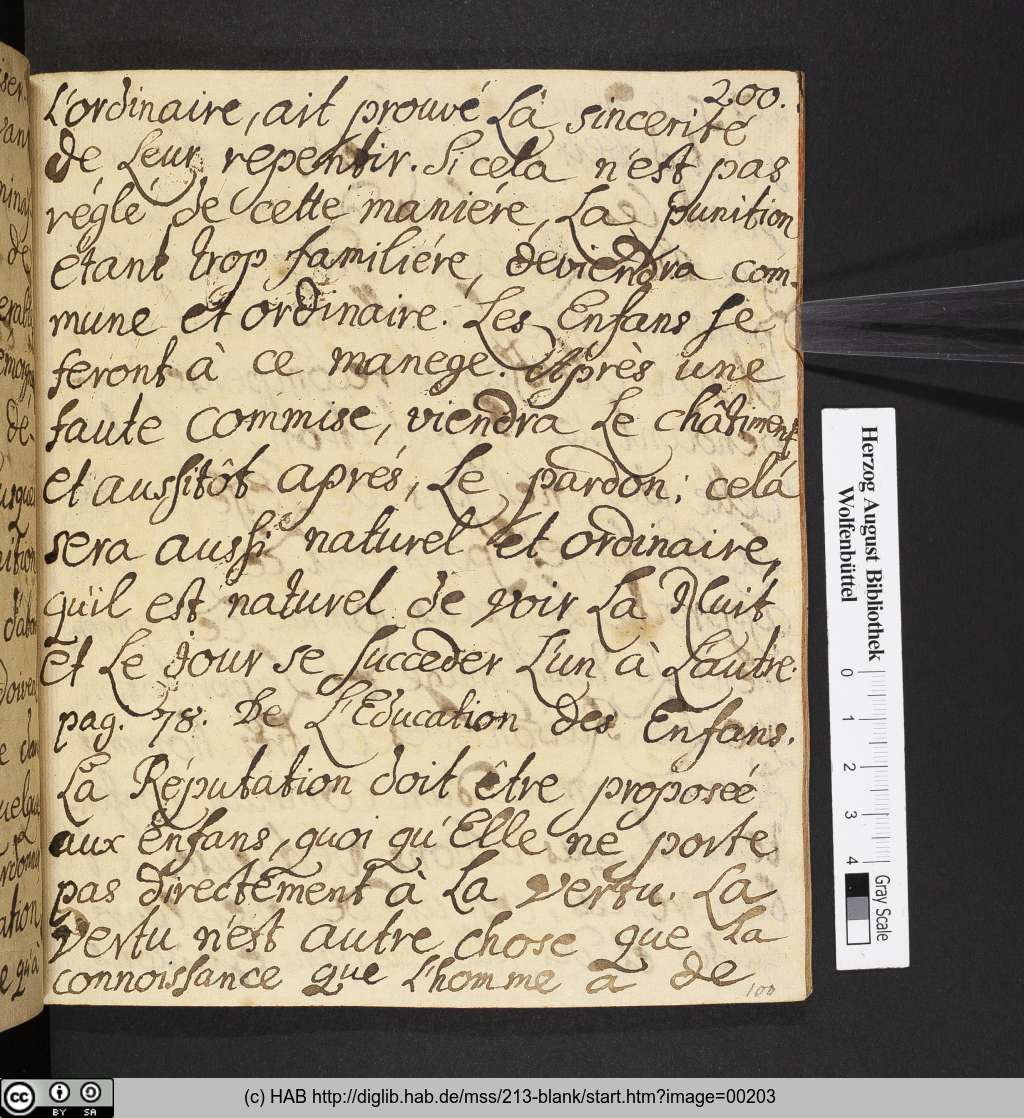 200.
L'ordinaire, ait prouvé La sincerité
de Leur repentir. Si cela n'est pas
réglé de cette maniére, La punition
etant trop familiére, deviendra com-
mune et ordinaire. Les Enfans se
feront à ce manege. Après une
faute commise, viendra Le châtiment
et aussitôt aprés, Le pardon; cela
sera aussi naturel et ordinaire,
qu'il est naturel de voir La Nuit
et Le jour se succeder L'un à L'autre.
pag. 78. De L'Education des Enfans.
La Réputation doit être proposée
aux enfans, quoi qu'Elle ne porte
pas directement à La vertu. La
Vertu n'est autre chose que La
connoissance que L'homme a de
100
Herzog August Bibliothek
Wolfenbüttel
0 1 2 3 4
Gray Scale
cc BY SA
(c) HAB http://diglib.hab.de/mss/213-blank/start.htm?image=00203